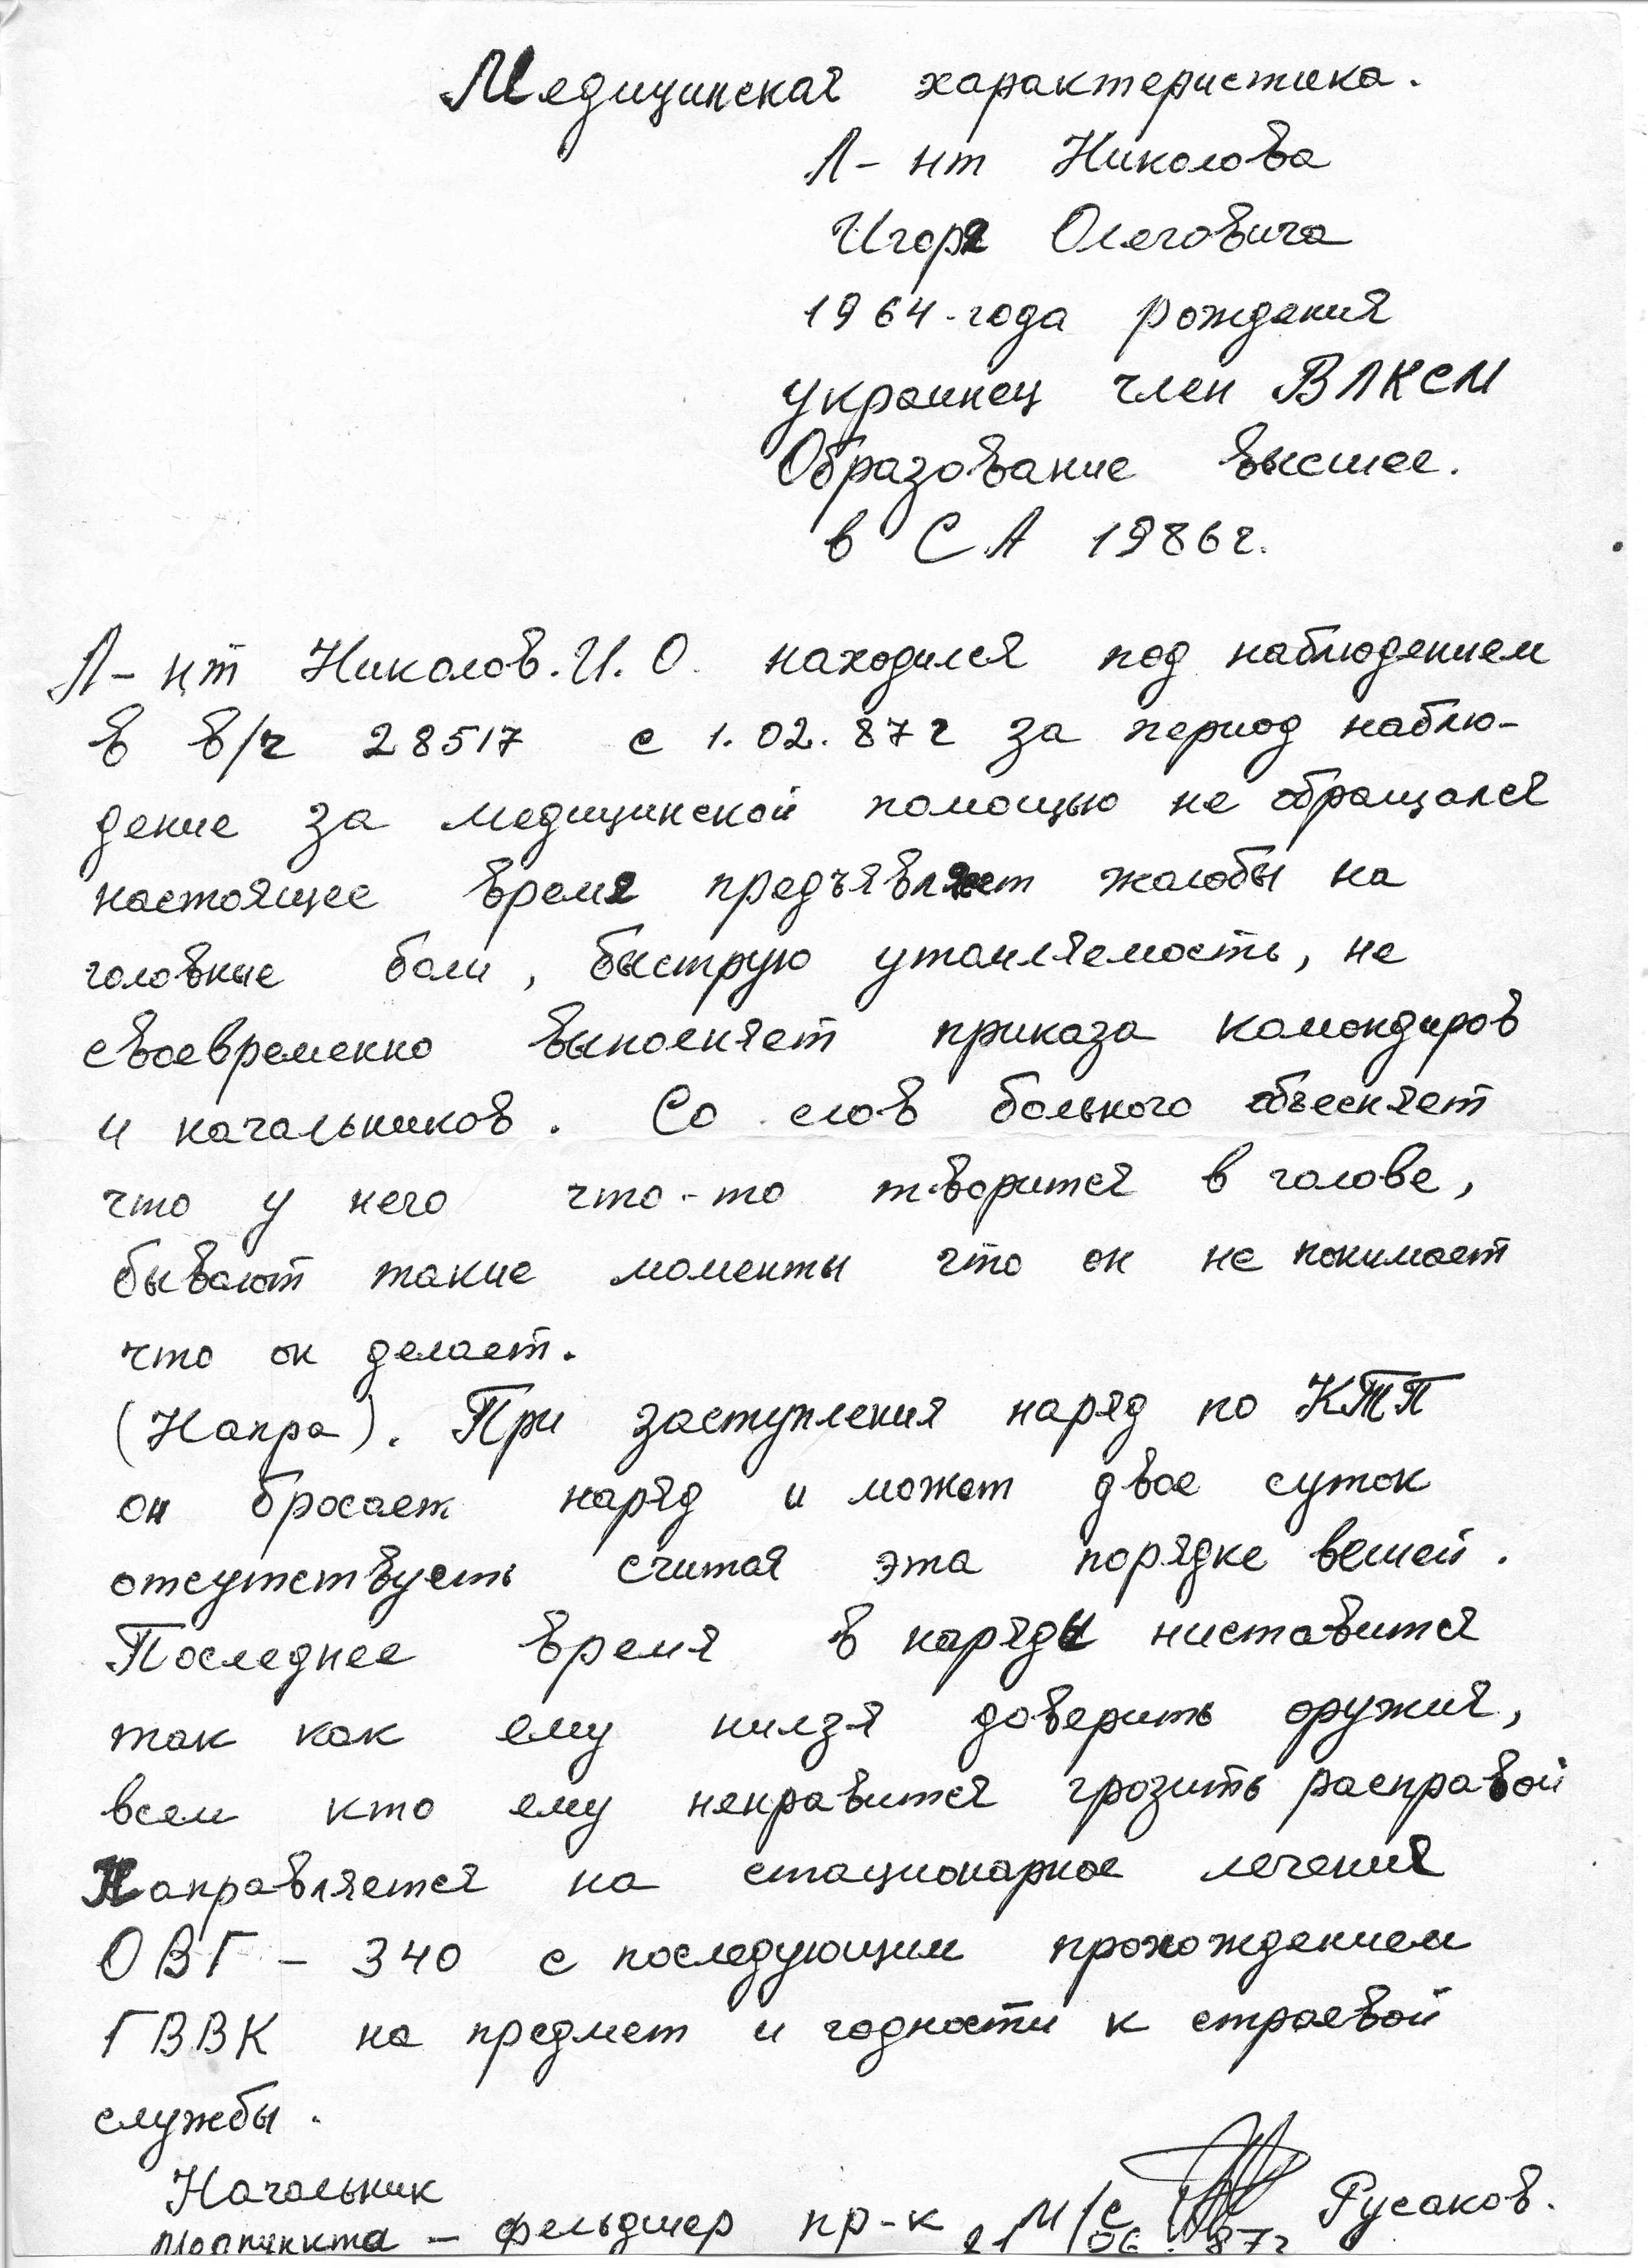 Медицинская характеристика.
Л-нт Николова
Игоря Олеговича
1964-года рождения
украинец член ВЛКСМ
Образование высшее.
в СА 1986г.
Л-нт Николов.И.О. находился под наблюдением
в в/ч 28517 с 1.02.87г за период наблю-
дение за медицинской помощью не обращался
настоящее время предъявляет жалобы на
головные боли, быструю утомляемость, не
своевременно выполняет приказа командиров
и начальников. Со слов больного объесняет
что у него что-то творится в голове,
бывают такие моменты что он не понимает
что он делает.
(Напра). При заступления наряд по КТП
он бросает наряд и может двое суток
отсутствуеть считая эта порядке вешей.
Последнее время в наряды ниставится
так как ему нилзя доверить оружия,
всем кто ему ненравится грозить расправой
Направляется на стационарное лечения
ОВГ - 340 с последующим прохождением
ГВВК на предмет и годности к строевой
службы.
Начальник
медпункта - фельдшер пр-к м/с Русаков.
21 06. 87г